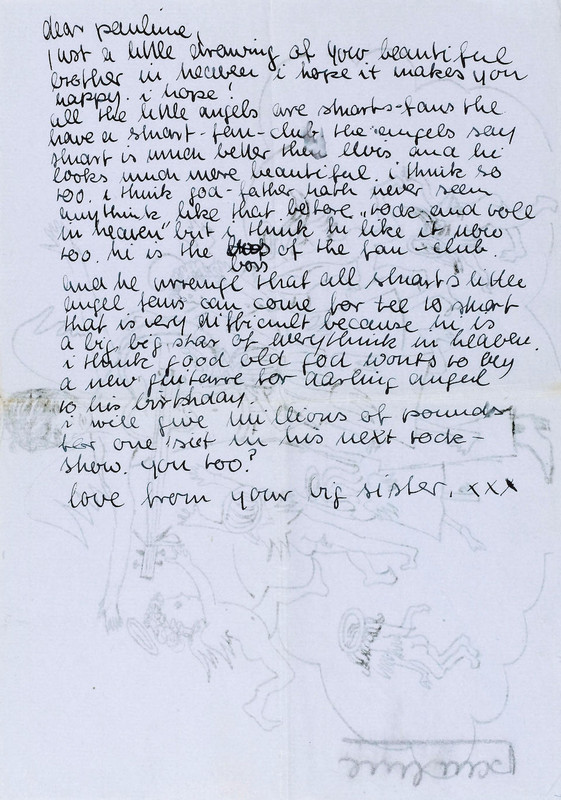 dear pauline,
just a little drawing of your beautiful
brother in heaven i hope it makes you
happy. i hope!
all the little angels are stuarts-fans the
have a stuart-fan-club, the angels say
stuart is much better then elvis. and hi
looks much more beautiful. i think so
too. i think god-father hath never seen
anythink like that before „rock and roll
in heaven" but i think hi like it now
too. hi is the boss of the fan-club.
and he arrange that all stuarts little
angel fens can come for tee to stuart
that is very difficult because hi is
a big big star of everythink in heaven.
i think good old god wonts to buy
a new guitarre for darling angel
to his birthday.
i will give millions of pounds
for one siet in his next rock-
show. you too?
love from your big sister. xxx
pauline